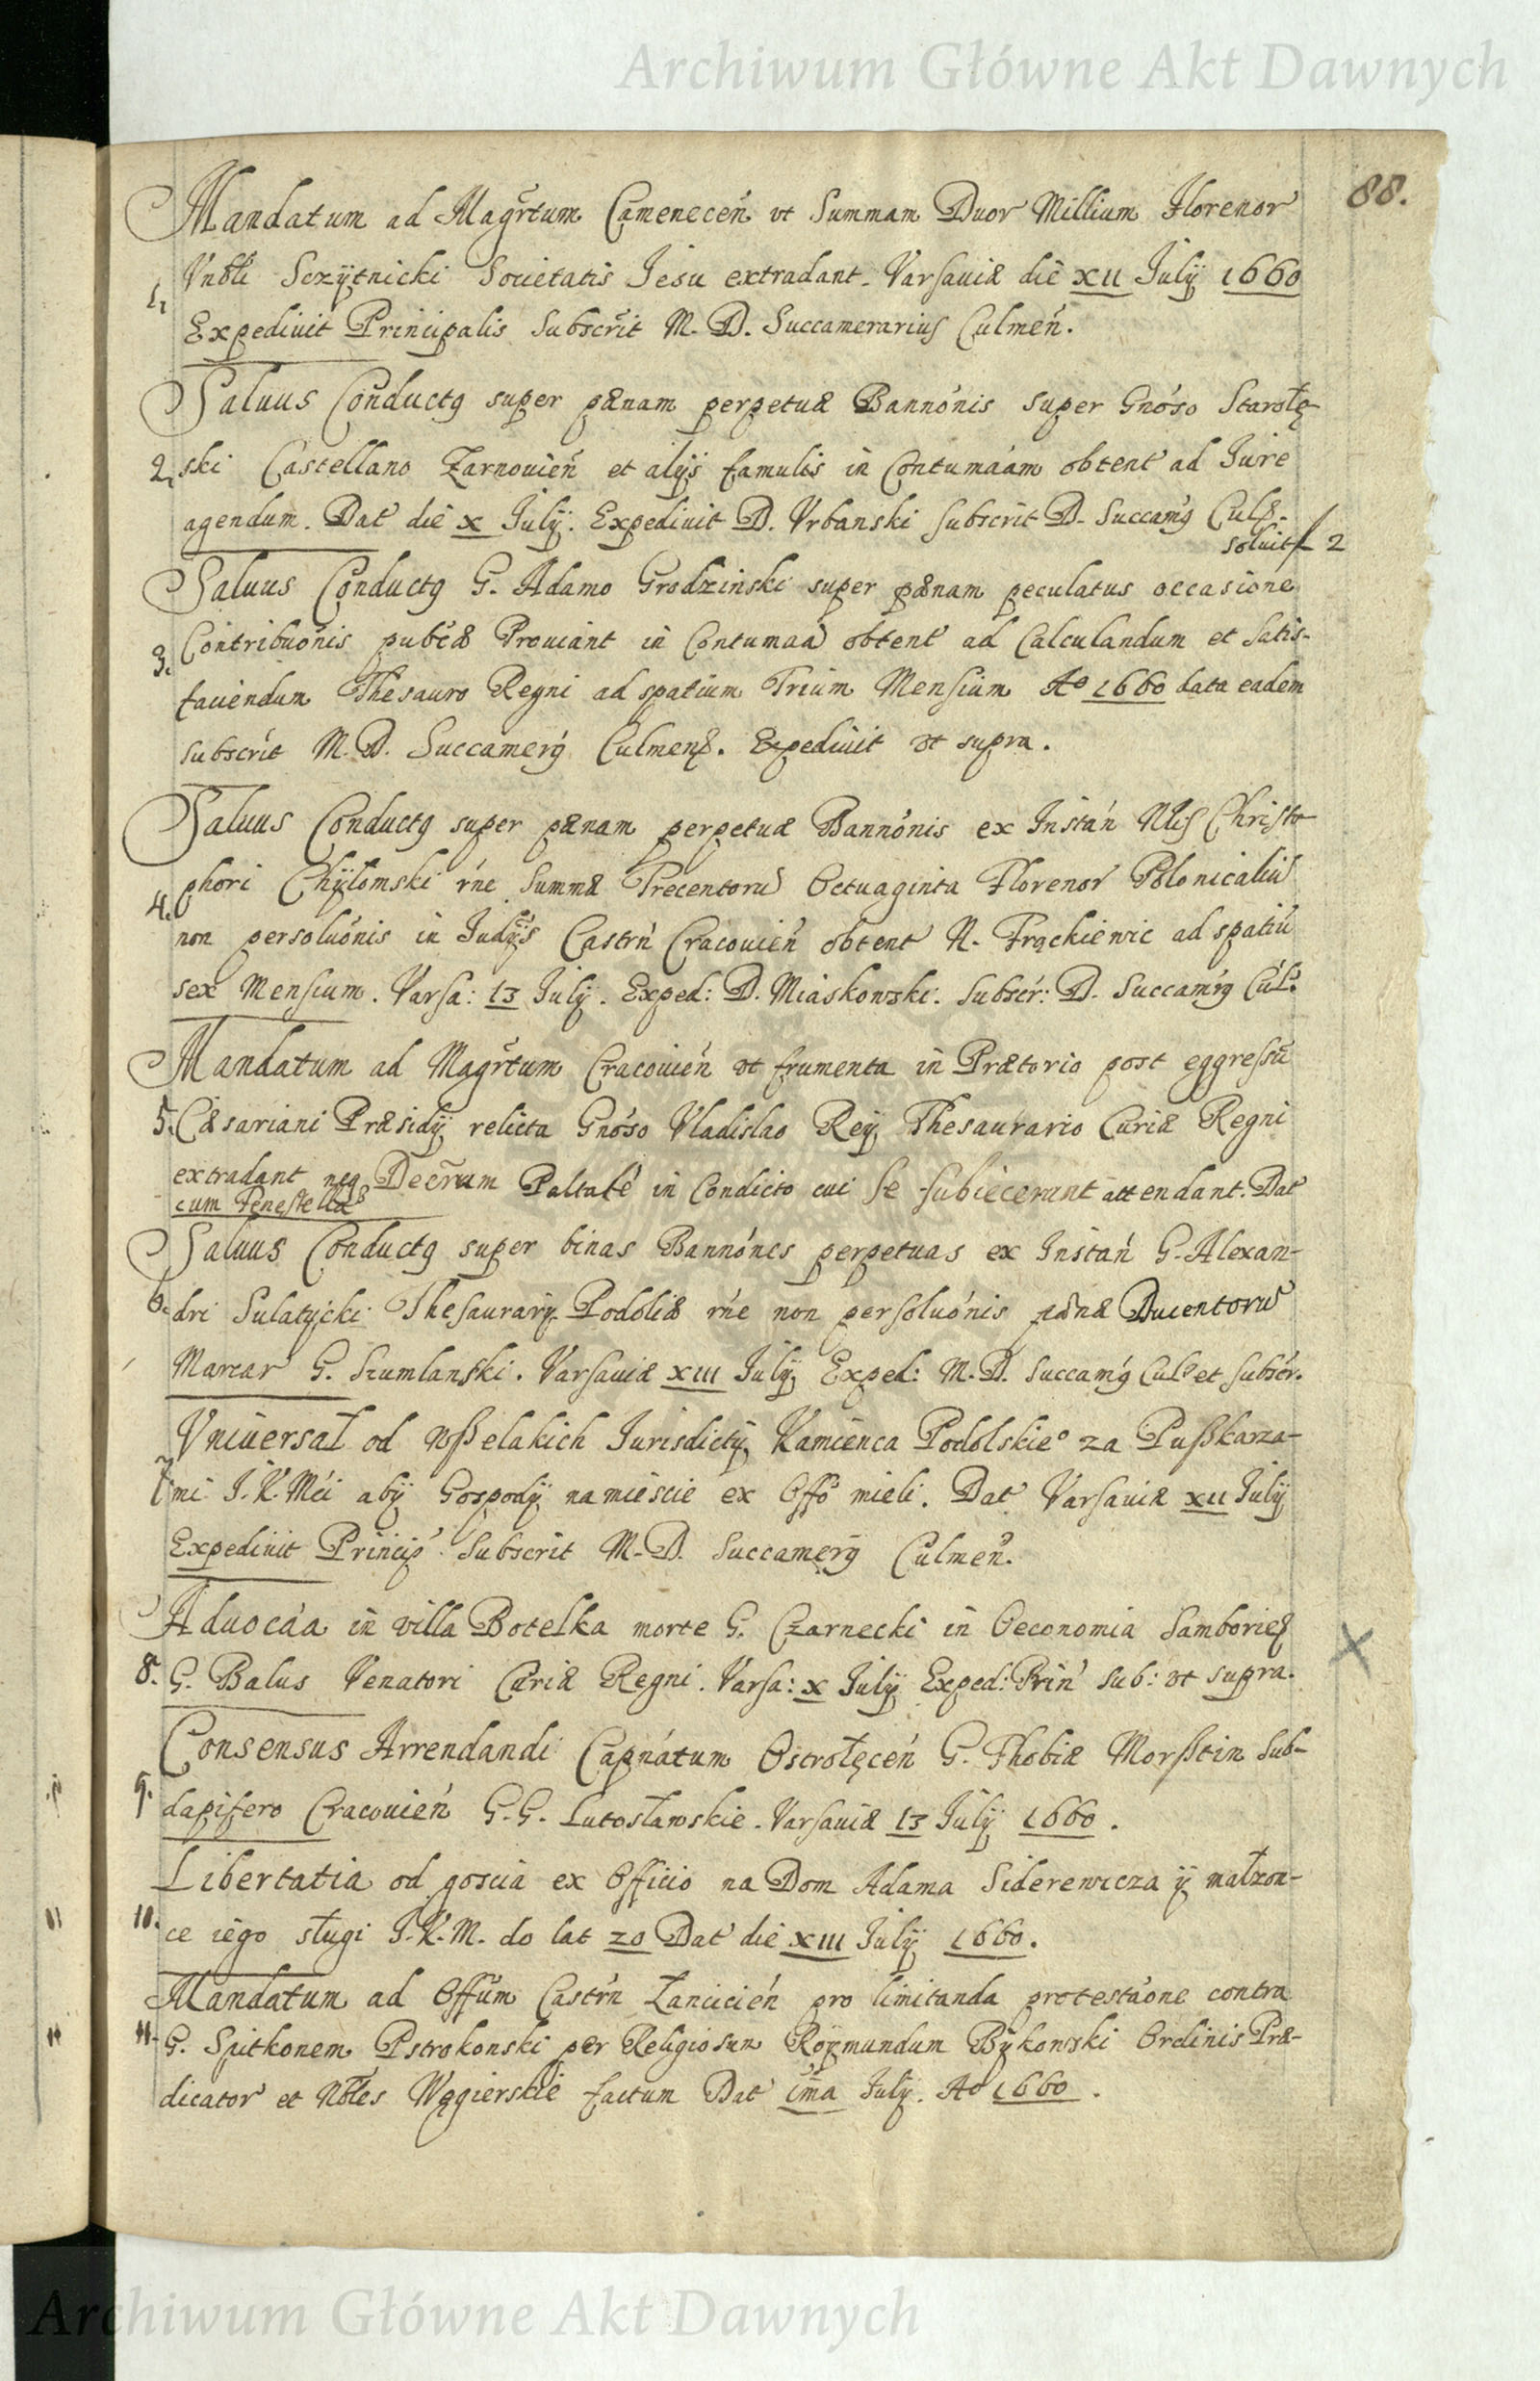 Archiwum Główne Akt Dawnych
88.
Mandatum ad Magr̃tum Camenecen̄ vt Summam Duor Millium Florenor
Vnbli Sczÿtnicki Societatis Jesu extradant. Varsaviæ die XII Julÿ 1660
1. Expedivit Principalis Subscr̃it M. D. Succamerarius Culmen̄.
Salvus Conductq super pænam perpetuæ Bannónis super Gnóso Starołę-
2. ski Castellano Zarnovien̄ et alÿs famulis in Contumáam obtent ad Jure
agendum. Dat die X Julÿ. Expedivit D. Vrbanski subscrit D. Succamq̃ Culs.
solvit f 2
Salvus Conductq G. Adamo Grodzinski super pænam peculatus occasione
3. Contribuónis pub̃cæ Proviant in Contumaa obtent ad Calculandum et satis-
faciendum Thesauro Regni ad spatium Trium Mensium Ao 1660 data eadem
subscrit M. D. Succamerq̃ Culmens. Expedivit vt supra.
Salvus Conductq super pænam perpetuæ Bannónis ex Instán Nlis Christo
4. phori Chÿlomski rñe Summæ Trecentoru Octuaginta Florenor Polonicaliu
non persoluónis in Judÿs Castrn̄ Cracovien̄ obtent N. Frąckiewic ad spatiu
sex Mensium. Varsa: 13 Julÿ. Exped: D. Miaskowski. Subscr: D. Succamq̃ Cul:
Mandatum ad Magr̃tum Cracovien̄ vt frumenta in Prætorio post eggressũ
5. Cæsariani Præsidÿ relicta Gnóso Vladislao Reÿ Thesaurario Curiæ Regni
extradant neq Decr̃um Paltale in Condicto cui se subiecerunt attendant. Dat
cum Penestella
Salvus Conductq super binas Bannónes perpetuas ex Instán G. Alexan-
6. dri Sulatycki Thesaurarÿ Podoliæ rñe non persoluónis pænæ Ducentoru
Marcar G. Szumlanski. Varsaviæ XIII Julÿ Exped: M. D. Succamq̃ Cul et subscr.
Vniversał od wszelakich Jurisdictÿ Kamienca Podolskieº za Puszkarza-
7. mi J. K. Mći abÿ Gospodÿ namieście ex Offo mieli. Dat Varsaviæ XII Julÿ
Expedivit Princip Subscrit M. D. Succamerq̃ Culmen̄.
Advocáa in villa Botelka morte G. Czarnecki in Oeconomia Samborien
8. G. Balus Venatori Curiæ Regni. Varsa: X Julÿ Exped: Prin Sub: vt supra.
Consensus Arrendandi Capnátum Ostrołęcen̄ G. Thobiæ Morsztin Sub-
9. dapifero Cracovien̄ G. G. Lutosławskie. Varsaviæ 13 Julÿ 1660.
Libertatia od goscia ex Officio na Dom Adama Siderewicza ÿ małzon-
10. ce iego sługi J. K. M. do lat 20 Dat die XIII Julÿ 1660.
Mandatum ad Offũm Castrn̄ Łancicien̄ pro limitanda protestáone contra
11. G. Spitkonem Pstrokonski per Religiosum Roymundum Bÿkowski Ordinis Præ-
dicator et Nobles Węgierskie factum Dat ima Julÿ. Ao 1660.
Archiwum Główne Akt Dawnych